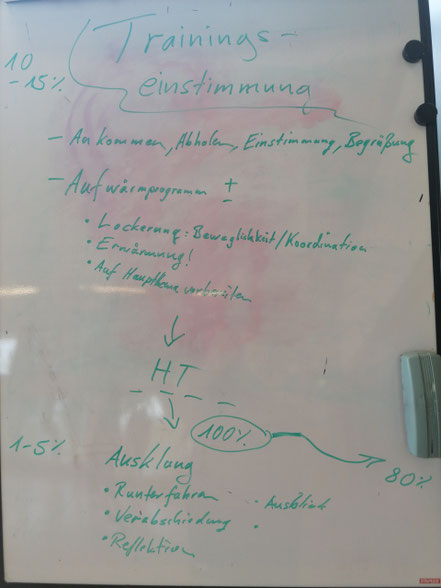 Trainings-
10
-15%
einstimmung
- Ankommen, Abholen, Einstimmung, Begrüßung
- Aufwärmprogramm ±
• Lockerung: Beweglichkeit/Koordination
• Erwärmung!
• Auf Hauptthema vorbereiten
HT
100%
1-5%
80%
Ausklang
• Runterfahren
• Ausblick
• Verabschiedung
•
• Reflektion